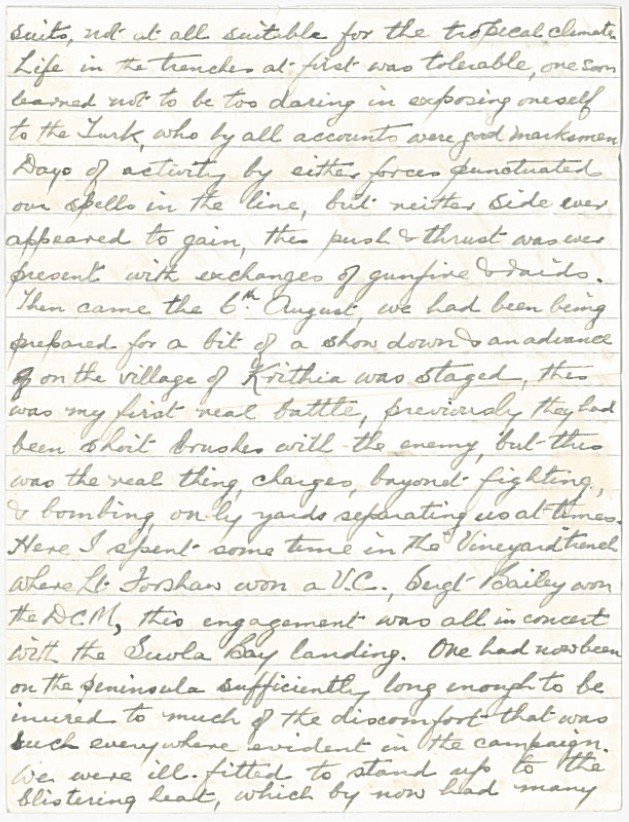 suits, not at all suitable for the tropical climate
Life in the trenches at first was tolerable, one soon
learned not to be too daring in exposing oneself
to the Turk, who by all accounts were good marksmen
Days of activity by either forces punctuated
our spells in the line, but neither side ever
appeared to gain, this push & thrust was ever
present with exchanges of gunfire & raids.
Then came the 6th. August, we had been being
prepared for a bit of a show down & an advance
on the village of Krithia was staged, this
was my first real battle, previously they had
been short brushes with the enemy, but this
was the real thing, charges, bayonet fighting,
& bombing, only yards separating us at times.
Here I spent some time in the Vineyard trench
where Lt Forshaw won a V.C., Sergt Bailey won
the DCM, this engagement was all in concert
with the Suvla Bay landing. One had now been
on the peninsula sufficiently long enough to be
inured to much of the discomfort that was
such everywhere evident in the campaign.
We were ill-fitted to stand up to the
blistering heat, which by now had many